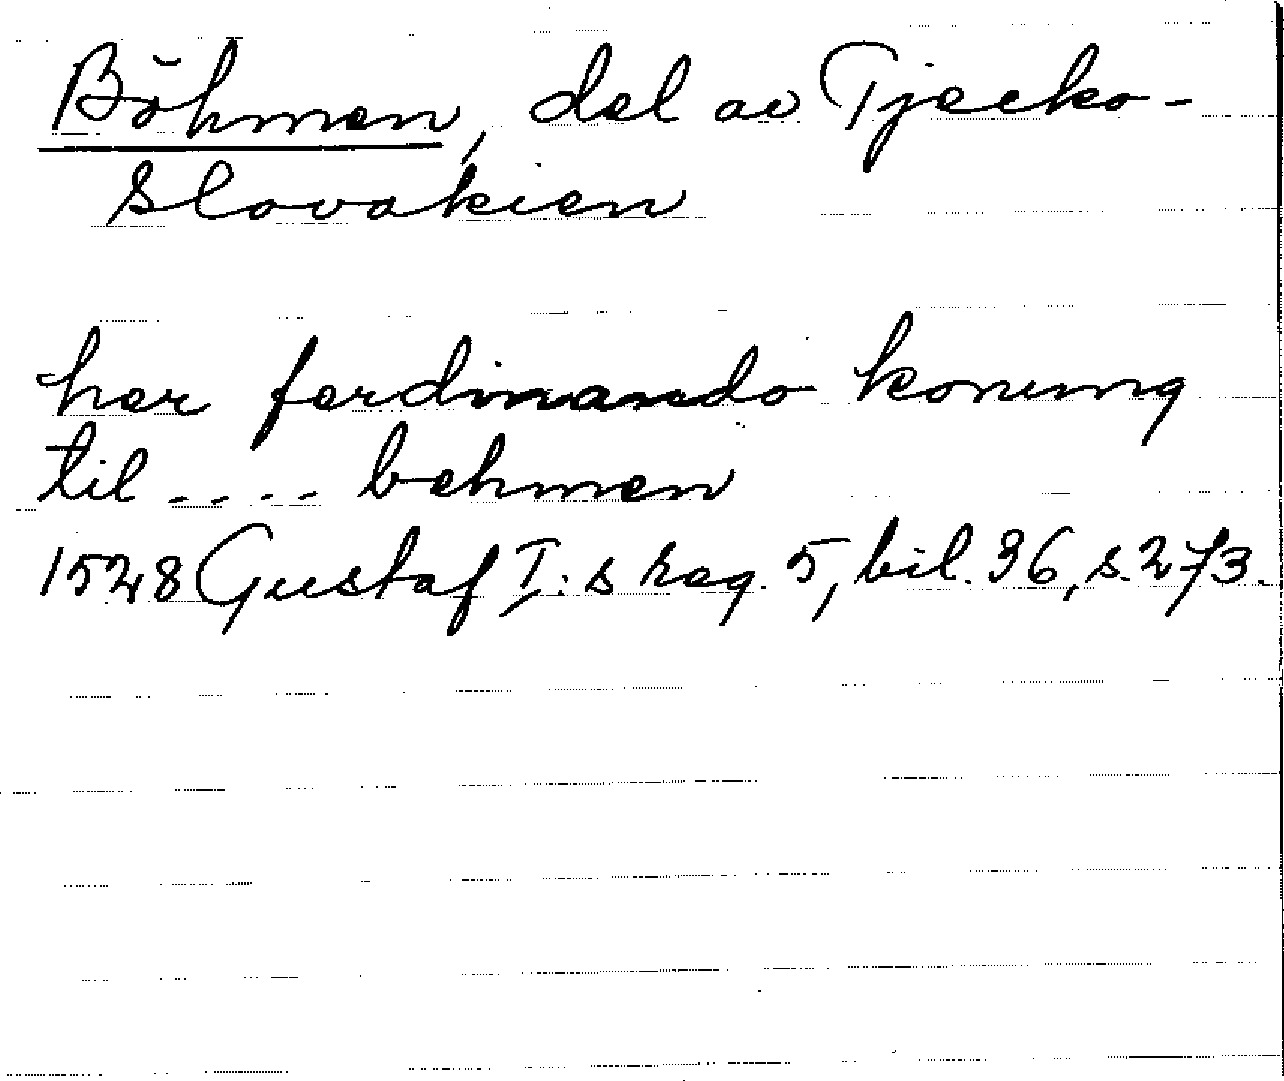 Böhmen, del av Tjecko-
slovakien
her ferdinando konung
til .... behmen
1528 Gustaf I:s reg. 5, bil. 36, s. 273.